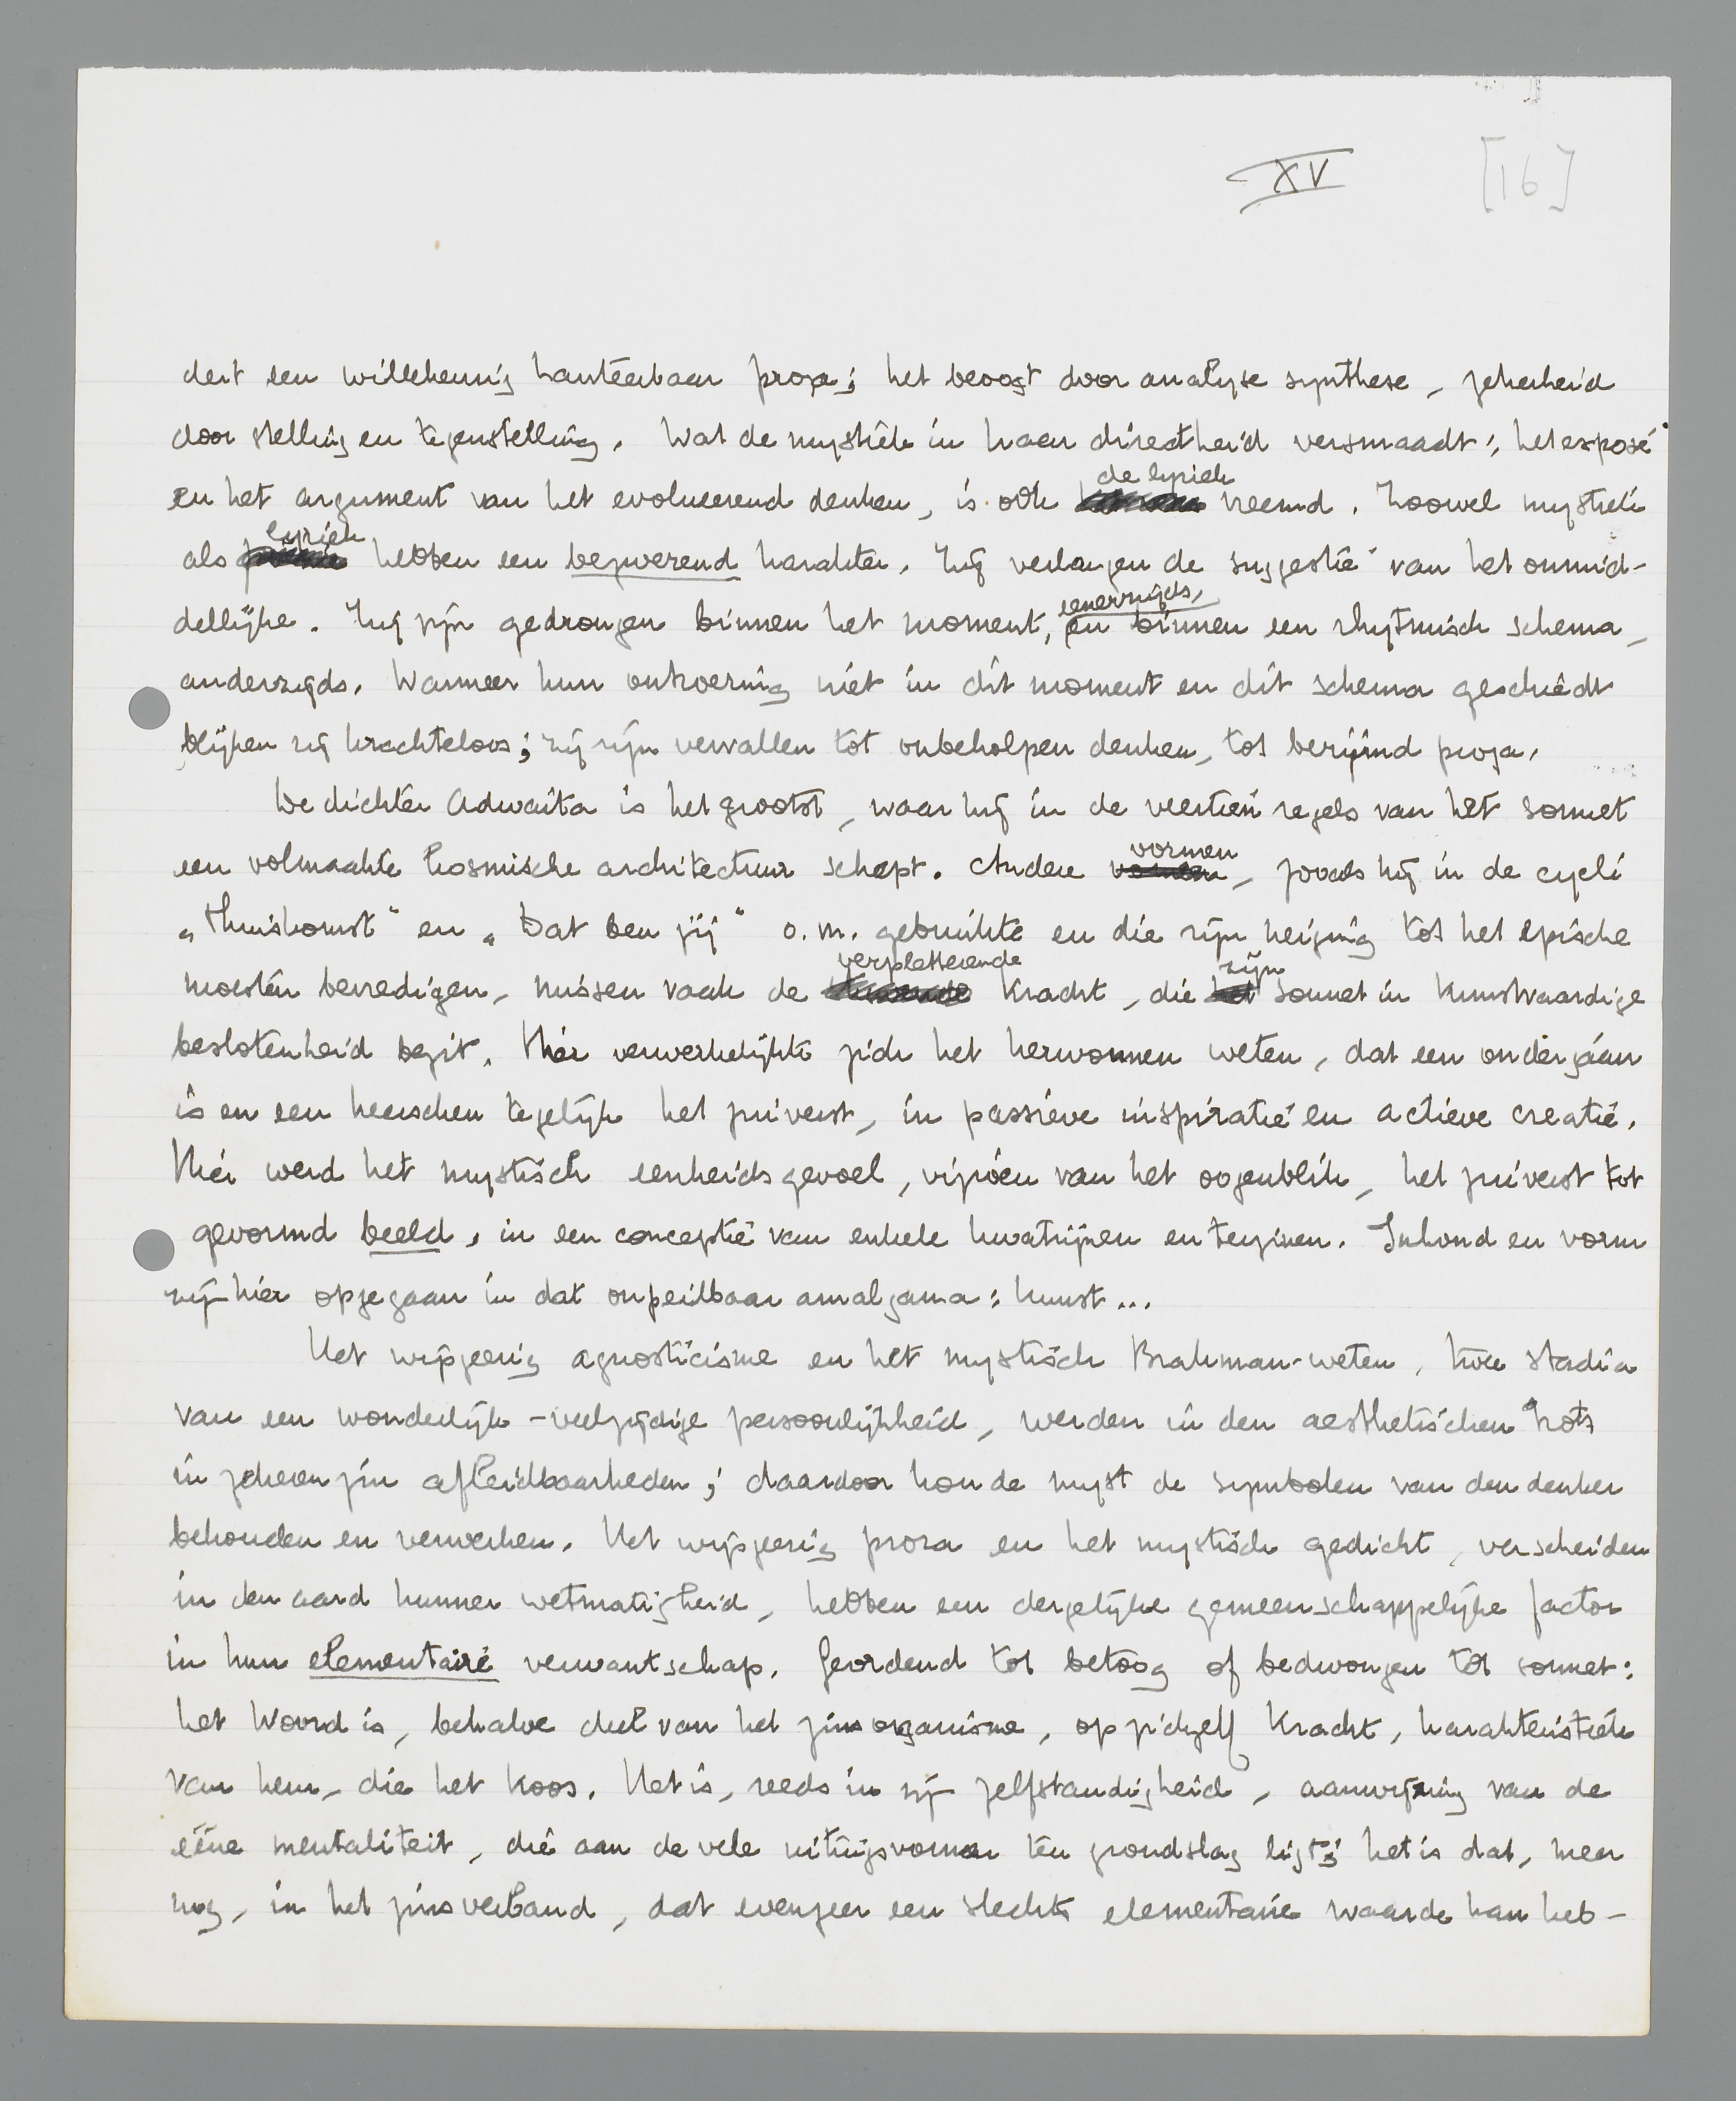 XV [16]
dert een willekeurig hanteerbaar proza; het beoogt door analyse synthese, zekerheid
door stelling en tegenstelling. Wat de mystiek in haar directheid versmaadt: het exposé
en het argument van het evolueerend denken, is ook de lyriek vreemd. Zoowel mystiek
als lyriek hebben een bezwerend karakter. Zij verlangen de suggestie van het onmid-
dellijke. Zij zijn gedrongen binnen het moment, eenerzijds, en binnen een rhytmisch schema,
anderzijds. Wanneer hun ontroering niet in dit moment en dit schema geschiedt
blijken zij krachteloos; zij zijn vervallen tot onbeholpen denken, tot berijmd proza.
De dichter Adwaita is het grootst, waar hij in de veertien regels van het sonnet
een volmaakte kosmische architectuur schept. Andere vormen, zooals hij in de cycli
„Thuiskomst" en „Dat ben jij" o.m. gebruikte en die zijn neiging tot het epische
moesten bevredigen, missen vaak de verpletterende kracht, die zijn sonnet in kunstvaardige
beslotenheid bezit. Hier verwerkelijkte zich het herwonnen weten, dat een ondergáán
is en een heerschen tegelijk het zuiverst, in passieve inspiratie en actieve creatie.
Hier werd het mystisch eenheidsgevoel, vizioen van het oogenblik, het zuiverst tot
gevormd beeld, in een conceptie van enkele kwatrijnen en terzinen. Inhoud en vorm
zijn hier opgegaan in dat onpeilbaar amalgama: kunst...
Het wijsgeerig agnosticisme en het mystisch Brahman-weten, twee stadia
van een wonderlijk-veelzijdige persoonlijkheid, werden in den aesthetischen trots
in zekeren zin afleidbaarheden; daardoor kon de myst de symbolen van den denker
behouden en verwerken. Het wijsgeerig proza en het mystisch gedicht, verscheiden
in den aard hunner wetmatigheid, hebben een dergelijke gemeenschappelijke factor
in hun elementaire verwantschap. Geordend tot betoog of bedwongen tot sonnet:
het Woord is, behalve deel van het zinsorganisme, op zichzelf kracht, karakteristiek
van hem, die het koos. Het is, reeds in zijn zelfstandigheid, aanwijzing van de
ééne mentaliteit, die aan de vele uitingsvormen ten grondslag ligt; het is dat, meer
nog, in het zinsverband, dat evenzeer een slechts elementaire waarde kan heb-